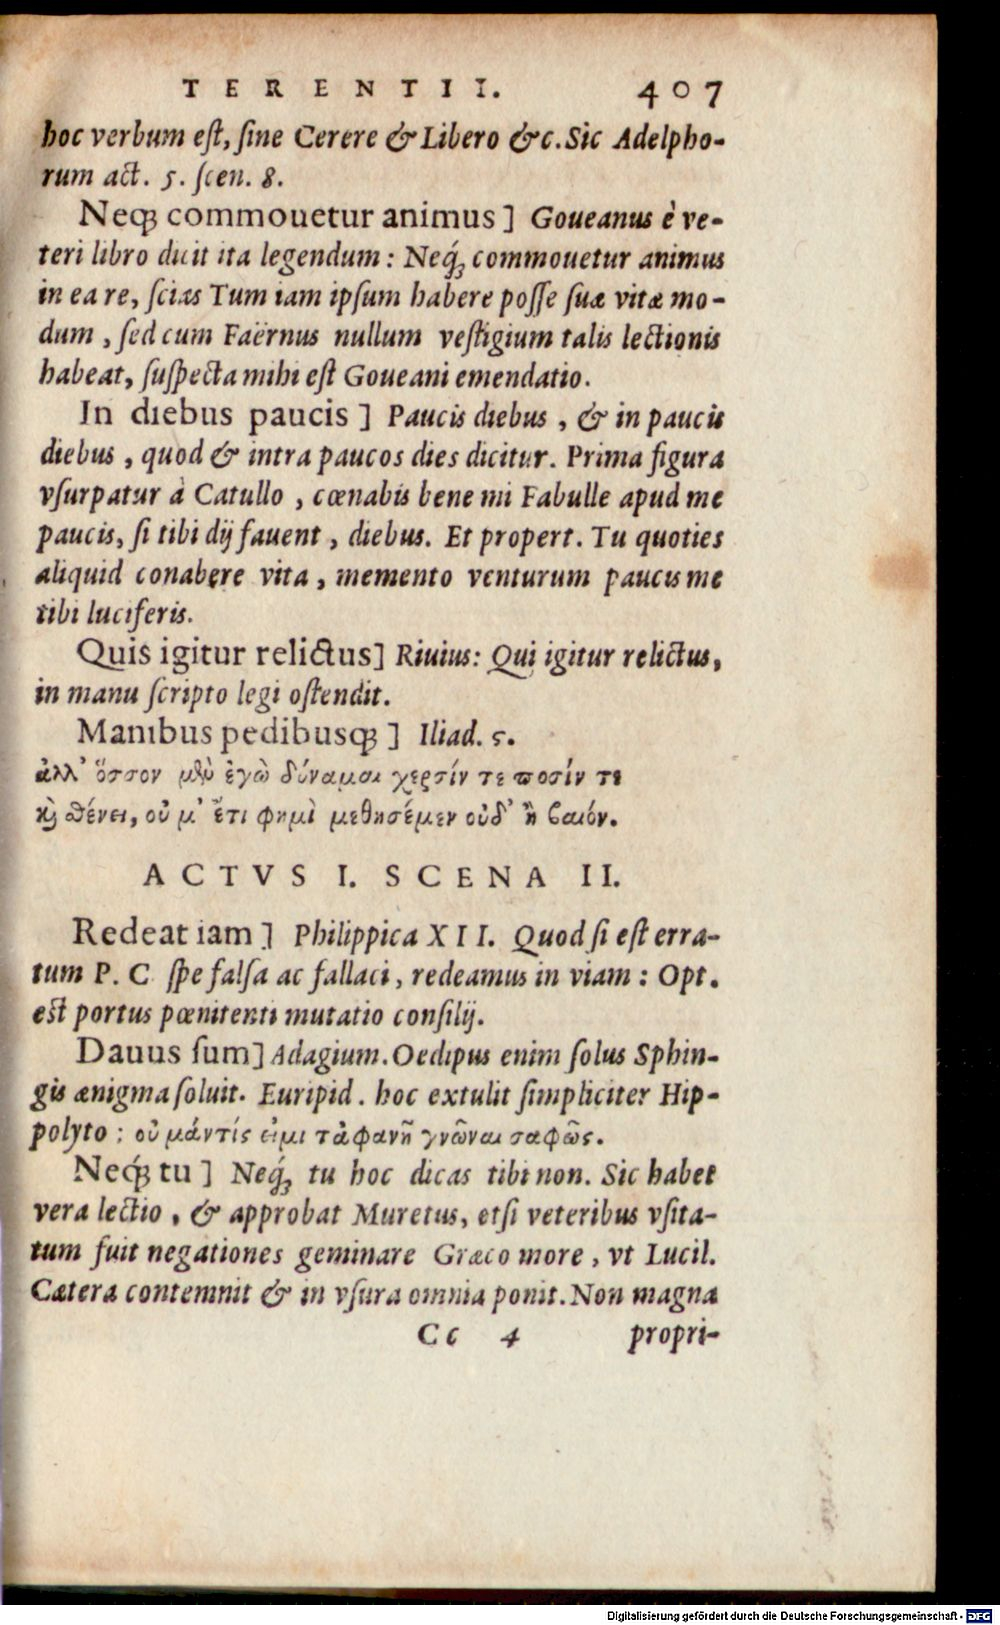 TERENTII. 407
hoc verbum eſt, ſine Cerere & Libero &c. Sic Adelpho-
rum act. 5. ſcen. 8.
Neq; commouetur animus] Goueanus è ve-
teri libro dicit ita legendum: Neq́; commouetur animus
in ea re, ſcias Tum iam ipſum habere poſſe ſuæ vitæ mo-
dum, ſed cum Faërnus nullum veſtigium talis lectionis
habeat, ſuſpecta mihi eſt Goueani emendatio.
In diebus paucis] Paucis diebus, & in paucis
diebus, quod & intra paucos dies dicitur. Prima figura
vſurpatur à Catullo, cœnabis bene mi Fabulle apud me
paucis, ſi tibi dij fauent, diebus. Et propert. Tu quoties
aliquid conabere vita, memento venturum paucis me
tibi luciferis.
Quis igitur relictus] Riuius: Qui igitur relictus,
in manu ſcripto legi oſtendit.
Manibus pedibusq;] Iliad. 5.
ἀλλ' ὅσσον μὲν ἐγὼ δύναμαι χερσίν τε ποσίν τε
καὶ σθένει, οὐ μ' ἔτι φημὶ μεθησέμεν οὐδ' ἢ βαιόν.
ACTVS I. SCENA II.
Redeat iam] Philippica XII. Quod ſi eſt erra-
tum P. C ſpe falſa ac fallaci, redeamus in viam: Opt.
eſt portus pœnitenti mutatio conſilij.
Dauus ſum] Adagium. Oedipus enim ſolus Sphin-
gis ænigma ſoluit. Euripid. hoc extulit ſimpliciter Hip-
polyto: οὐ μάντίς εἰμι τἀφανῆ γνῶναι σαφῶς.
Neq́; tu] Neq́; tu hoc dicas tibi non. Sic habet
vera lectio, & approbat Muretus, etſi veteribus vſita-
tum fuit negationes geminare Græco more, vt Lucil.
Cætera contemnit & in vſura omnia ponit. Non magna
Cc 4 propri-
Digitalisierung gefördert durch die Deutsche Forschungsgemeinschaft - DFG